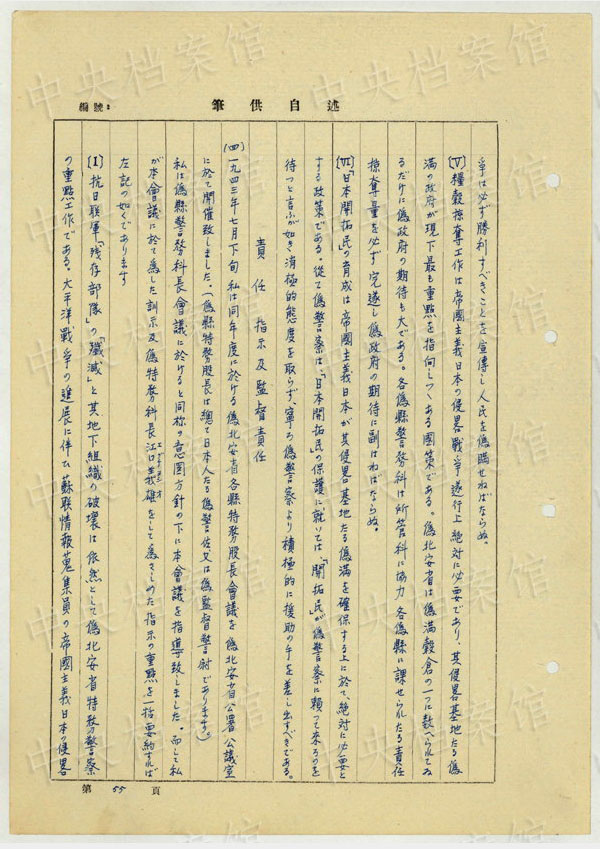 筆供自述
編號：
爭は必ず勝利すべきことを宣傳し人民を偽瞞せねばならぬ。
(Ⅴ)糧穀掠奪工作は帝國主義日本の侵畧戰爭遂行上絶対に必要であり、其侵畧基地たる偽
満の政府が現下最も重點を指向しつゝある國策である。偽北安省は偽満穀倉の一つに数へられてゐ
るだけに偽政府の期待も大である。各偽縣警務科は所管科に協力、各偽縣に課せられたる責任
掠奪量を必ず完遂し偽政府の期待に副はねばならぬ。
(Ⅵ)「日本開拓民」の育成は帝國主義日本が其侵畧基地たる偽満を確保する上に於て、絶対に必要と
する政策である。從て偽警察は、「日本開拓民」の保護に就いては、「開拓民」が偽警察に頼って來るのを
待つと言ふが如き消極的態度を取らず、寧ろ偽警察より積極的に援助の手を差し出すべきである。
責任 指示及監督責任
(四)一九四三年七月下旬 私は同年度に於ける偽北安省各縣特務股長會議を偽北安省公署公議室
に於て開催致しました。(偽縣特務股長は總て日本人たる偽警佐又は偽監督警尉であります。)
私は偽縣警務科長會議に於けると同樣の意圖方針の下に本會議を指導致しました。而して私
が本會議に於て為した訓示及偽特務科長江口
をして為さしめた指示の重點を一括要約すれば
左記の如くであります
(Ⅰ)抗日联軍「残存部隊」の「殲滅」と其地下組織の破壞は依然として偽北安省特務警察
の重點工作である。太平洋戰爭の進展に伴ひ蘇联情報蒐集員の帝國主義日本の侵畧
第 55 頁
中央档案馆